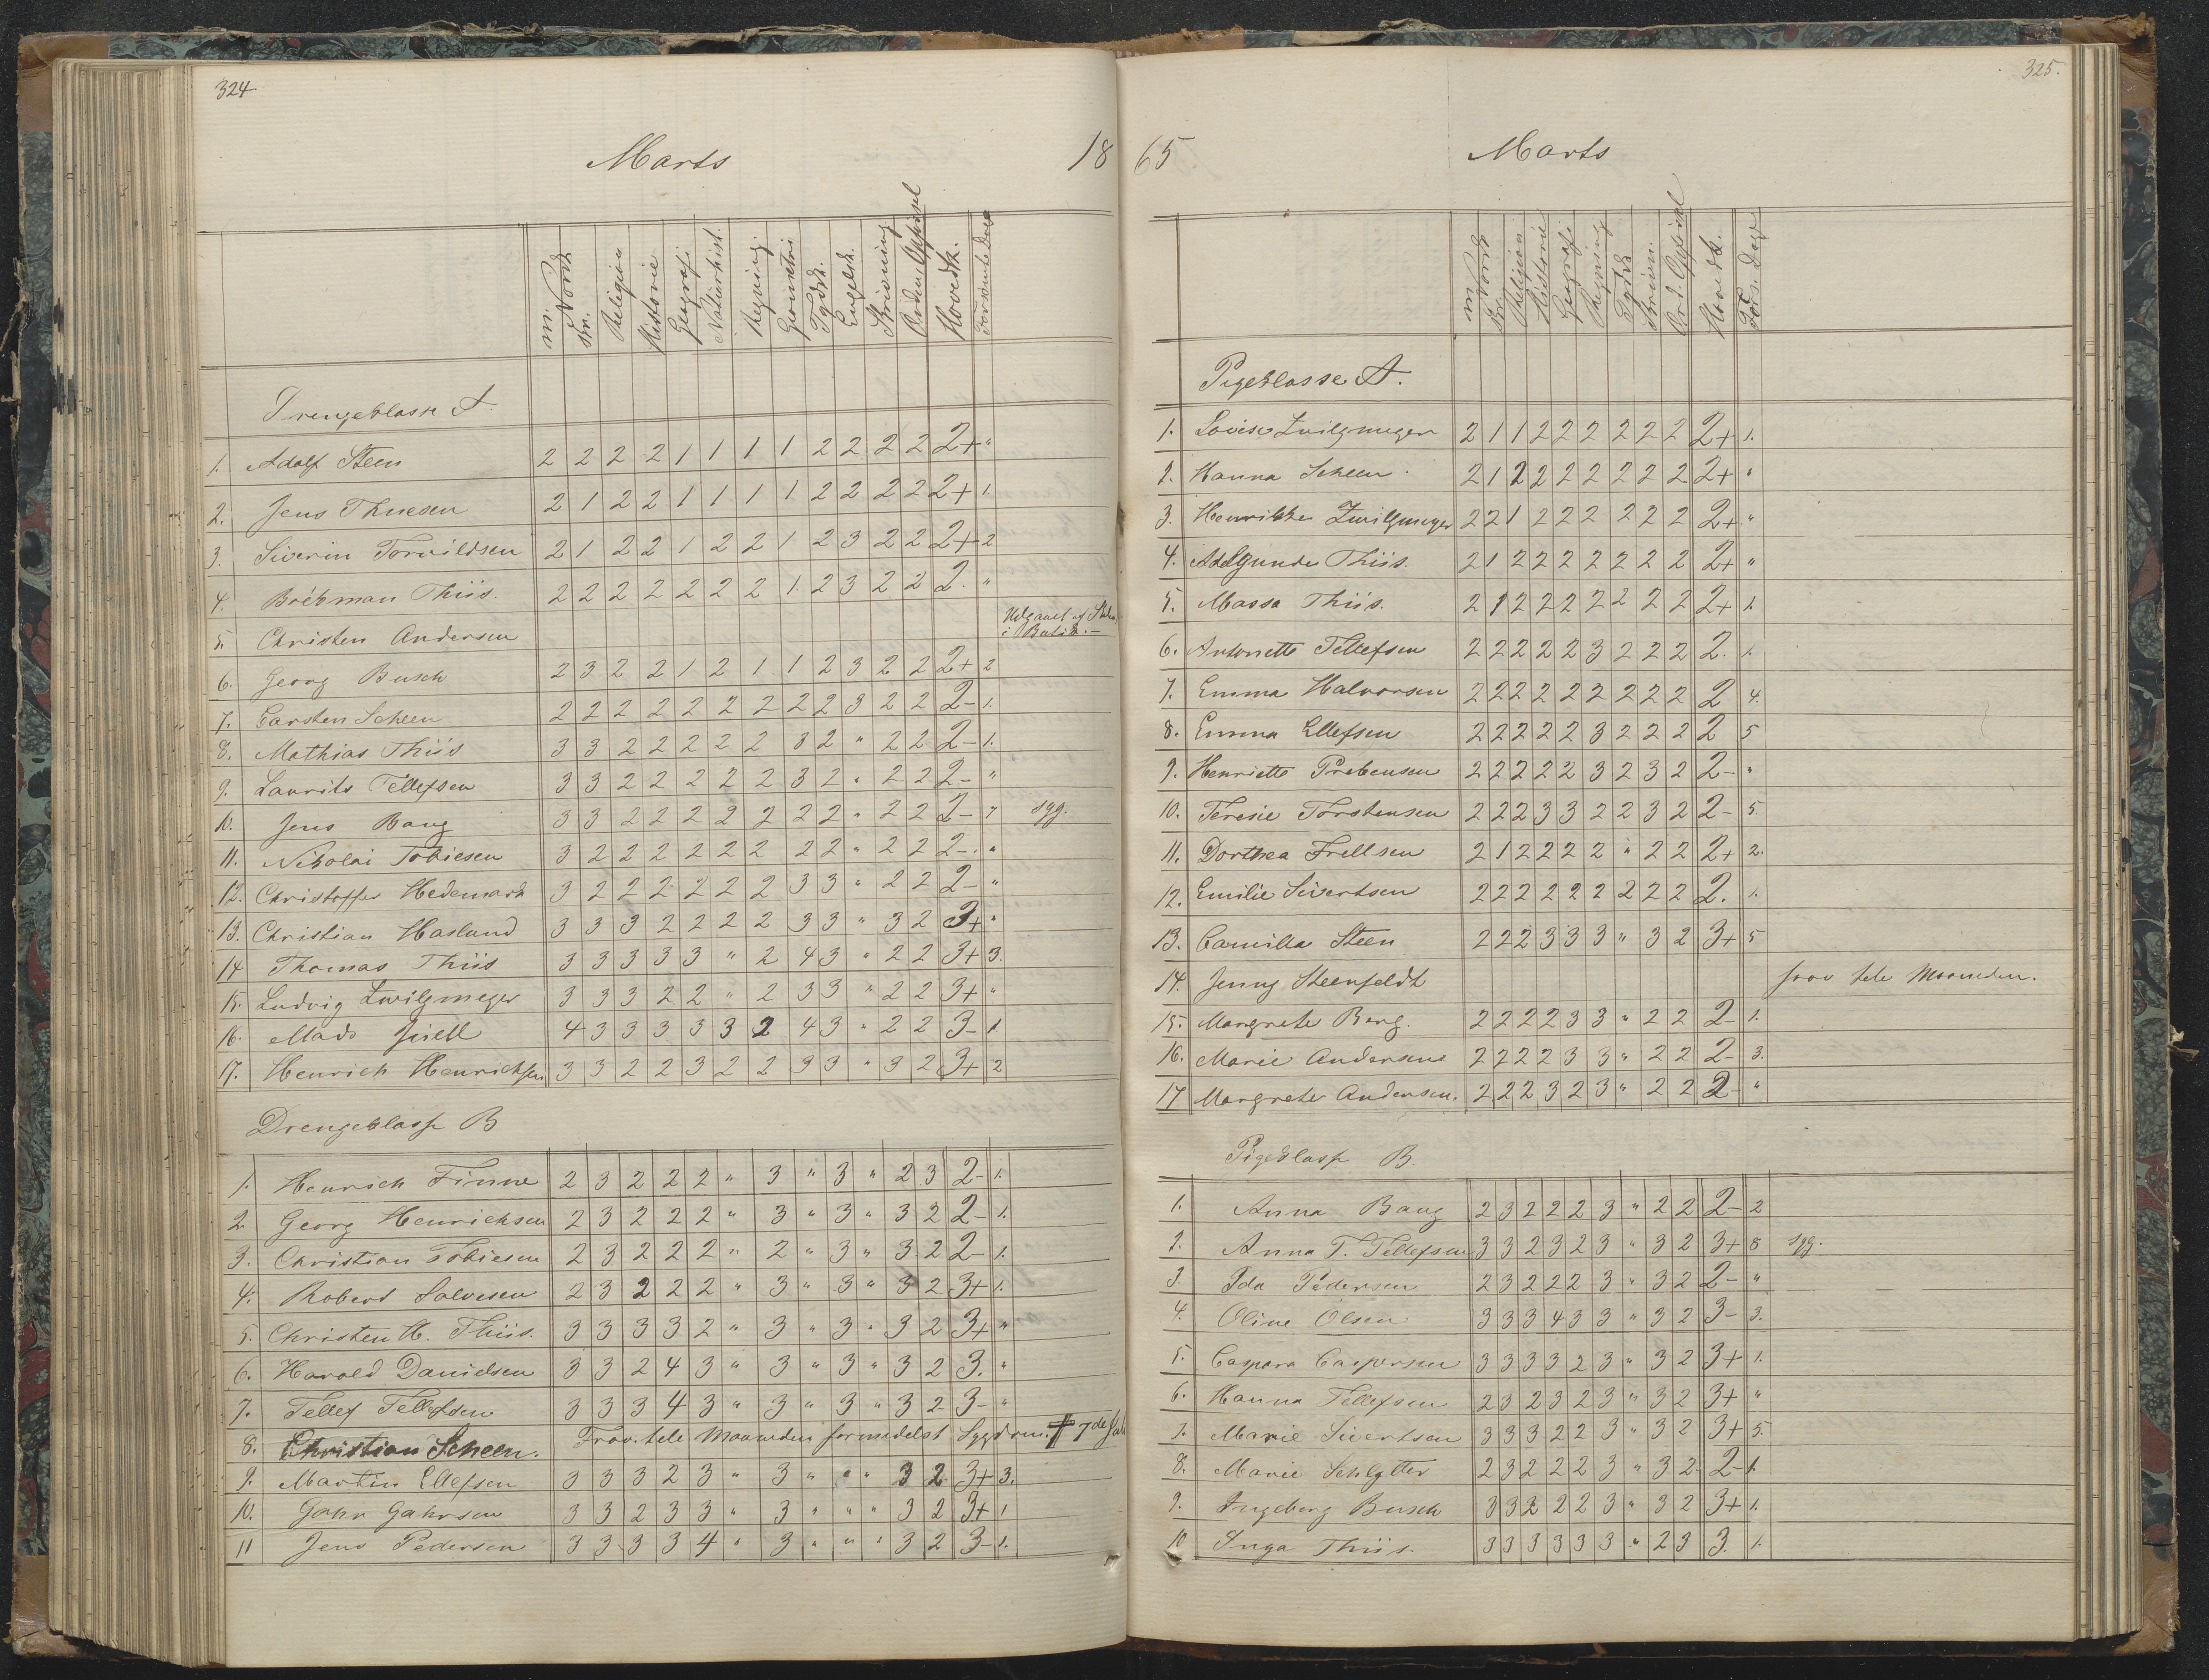 324
Marts 18
m. Norsk sk. Religion Historie Geografi Naturhist. Regning Geometri Tydsk. Engelsk. Skrivning Orden, Opførsel Hovedk. Forsømte Dage
Drengeklasse A.
1. Adolf Steen 2 2 2 2 1 1 1 1 2 2 2 2 2+ "
2. Jens Thuesen 2 1 2 2 1 1 1 1 2 2 2 2 2+ 1.
3. Siverin Torvildsen 2 1 2 2 1 2 2 1 2 3 2 2 2+ 2
4. Thiis. 2 2 2 2 2 2 2 1. 2 3 2 2 2. "
5. Christen Andersen Udgaaet af i Butik.
6. Georg Busch 2 3 2 2 1 2 1 1 2 3 2 2 2+ 2
7. Carsten Scheen 2 2 2 2 2 2 2 2 2 3 2 2 2- 1.
8. Mathias Thiis 3 3 2 2 2 2 2 3 2 " 2 2 2- 1.
9. Laurits Tellefsen 3 3 2 2 2 2 2 3 2 " 2 2 2- "
10. Jens Bang 3 3 2 2 2 2 2 2 2 " 2 2 2- 7 syg.
11. Nikolai Tobiesen 3 2 2 2 2 2 2 2 2 " 2 2 2- "
12. Christoffer Hedemark 3 2 2 2 2 2 2 3 3 " 2 2 2- "
13. Christian Haslund 3 3 3 2 2 2 2 3 3 " 3 2 3+ "
14 Thomas Thiis 3 3 3 3 3 " 2 4 3 " 2 2 3+ 3.
15. Ludvig Zwilgmeyer 3 3 3 2 2 " 2 3 3 " 2 2 3+ "
16. Mads Juell 4 3 3 3 3 3 2 4 3 " 2 2 3- 1.
17. Henrich Henrichsen 3 3 2 2 3 2 2 3 3 " 3 2 3+ 2
Drengeklasse B
1. Henrich Finne 2 3 2 2 2 " 3 " 3 " 2 3 2- 1.
2 Georg Henrichsen 2 3 2 2 2 " 3 " 3 " 3 2 2- 1.
3. Christian Tobiesen 2 3 2 2 2 " 2 " 3 " 3 2 2- 1.
4. Robert Salvesen 2 3 2 2 2 " 3 " 3 " 3 2 3+ 1.
5. Christen H. Thiis. 3 3 3 3 2 " 3 " 3 " 3 2 3+ "
6. Harald Danielsen 3 3 2 4 3 " 3 " 3 " 3 2 3. "
7. Tellef Tellefsen 3 3 3 4 3 " 3 " 3 " 3 2 3- "
8. Christian Scheen. Frav. hele Maaneden formedelst Sygdom. † 7de
9. Martin Ellefsen 3 3 3 2 3 " 3 " " " 3 2 3+ 3.
10. Gahr Gahrsen 3 3 2 3 3 " 3 " " " 3 2 3+ 1
11 Jens Pedersen 3 3 3 3 4 " 3 " " " 3 2 3- 1.
325.
65 Marts
m. Norsk sk. Religion Historie Geografi Regning Tydsk Skrivn. Ord. Opførsel Hovedk. Fors. Dage
Pigeklasse A.
1. Lovise Zwilgmeyer 2 1 1 2 2 2 2 2 2 2+ 1.
2. Hanna Scheen 2 1 2 2 2 2 2 2 2 2+ "
3. Henrikke Zwilgmeyer 2 2 1 2 2 2 2 2 2 2+ "
4. Adelgunde Thiis. 2 1 2 2 2 2 2 2 2 2+ "
5. Massa Thiis. 2 1 2 2 2 2 2 2 2 2+ 1.
6. Antonette Tellefsen 2 2 2 2 2 3 2 2 2 2. 1.
7. Emma Halvorsen 2 2 2 2 2 2 2 2 2 2 4.
8. Emma Ellefsen 2 2 2 2 2 3 2 2 2 2 5
9. Henriette Prebensen 2 2 2 2 2 3 2 3 2 2- "
10. Teresie Torstensen 2 2 2 3 3 2 2 3 2 2- 5.
11. Dorthea Frellsen 2 1 2 2 2 2 " 2 2 2+ 2.
12. Emilie Sivertsen 2 2 2 2 2 2 2 2 2 2. 1.
13. Camilla Steen 2 2 2 3 3 3 " 3 2 3+ 5
14. Jenny Steenfeldt frav hele Maaneden.
15. Margrete Berg. 2 2 2 2 3 3 " 2 2 2- 1.
16. Marie Andersen 2 2 2 2 3 3 " 2 2 2- 3.
17 Margrete Andersen. 2 2 2 3 2 3 " 2 2 2- "
Pigeklasse B.
1. Anna Bang 2 3 2 2 2 3 " 2 2 2- 2
2. Anna T. Tellefsen 3 3 2 3 2 3 " 3 2 3+ 8 syg.
3. Ida Pedersen 2 3 2 2 2 3 " 3 2 2- "
4. Oline Olsen 3 3 3 4 3 3 " 3 2 3- 3.
5. Caspara Caspersen 3 3 3 3 2 3 " 3 2 3+ 1.
6. Hanna Tellefsen 2 3 2 3 2 3 " 3 2 3+ "
7. Marie Sivertsen 3 3 3 2 2 3 " 3 2 3+ 5.
8. Marie Schlytter 2 3 2 2 2 3 " 3 2 2- 1.
9. Ingeborg Busch 3 3 2 2 2 3 " 3 2 3+ 1.
10 Inga Thiis. 3 3 3 3 3 3 " 2 3 3. 1.